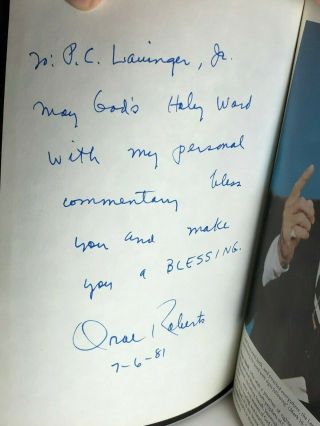 To: P.C. Lauinger, Jr.
May God's Holy Word
with my personal
commentary bless
you and make
you a BLESSING.
Oral Roberts
7-6-81